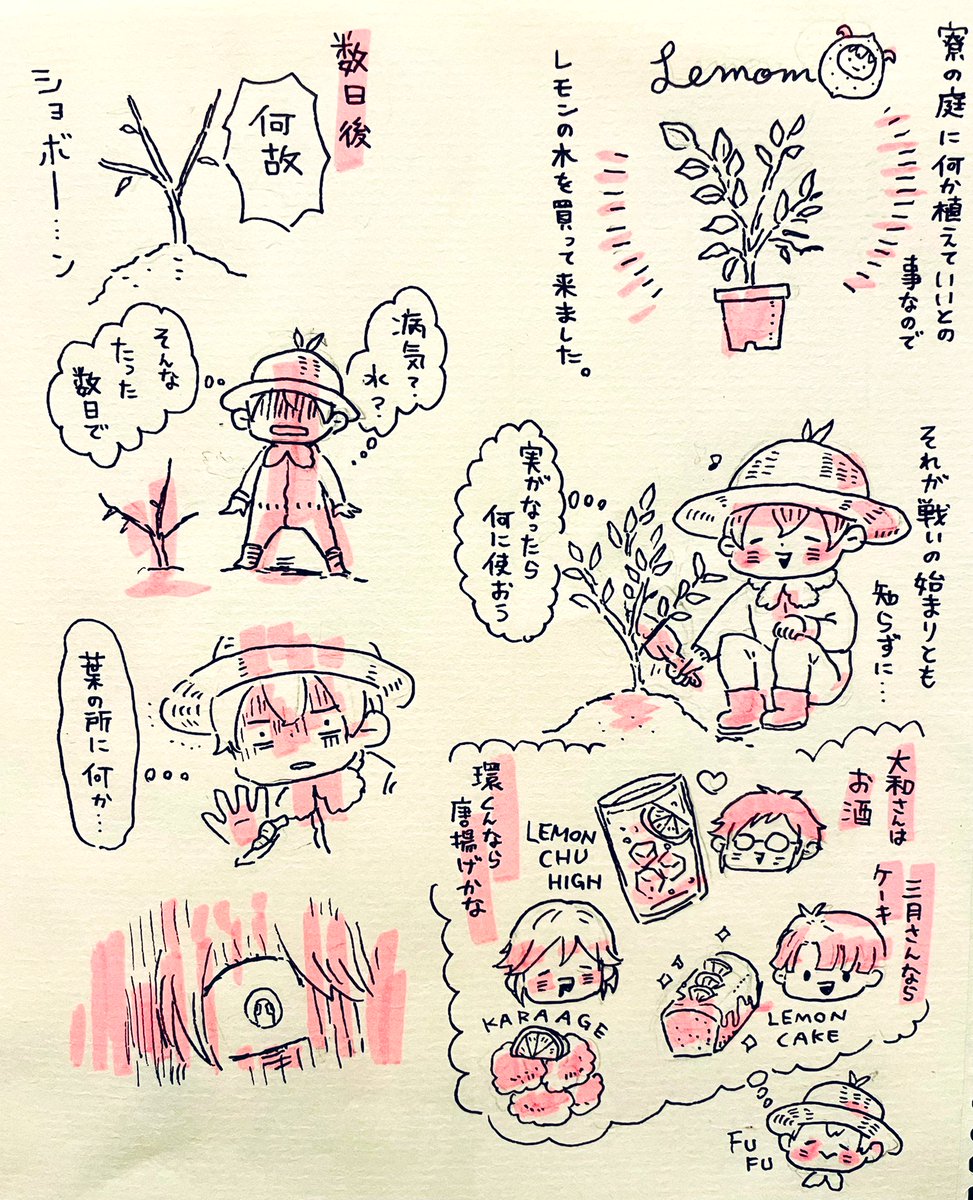 寮の庭に何か植えていいとの
事なので
Lemom
レモンの木を買って来ました。
それが戦いの始まりとも
知らずに…
♪
実がなったら
何に使おう
大和さんは
お酒
LEMON
CHU
HIGH
三月さんなら
ケーキ
LEMON
CAKE
環くんなら
唐揚げかな
KARAAGE
FU
FU
数日後
何故
ショボーーン
病気?
水?
そんな
たった
数日で
葉の所に何か…